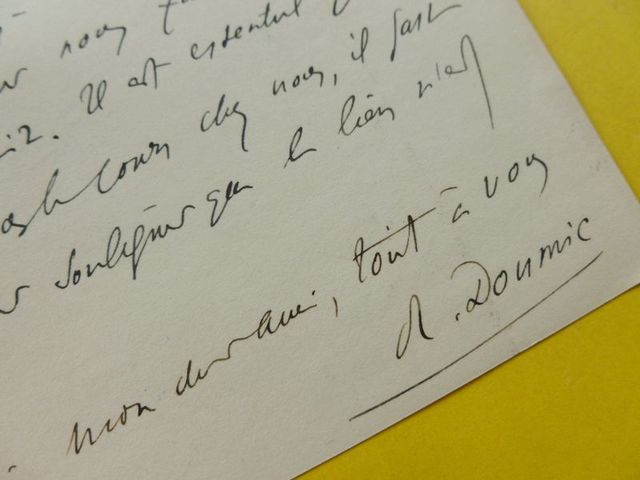 nous
. Il est essentiel
cours chez nous, il faut
souligner que le lien n'est
mon cher ami, tout à vous
R. Doumic